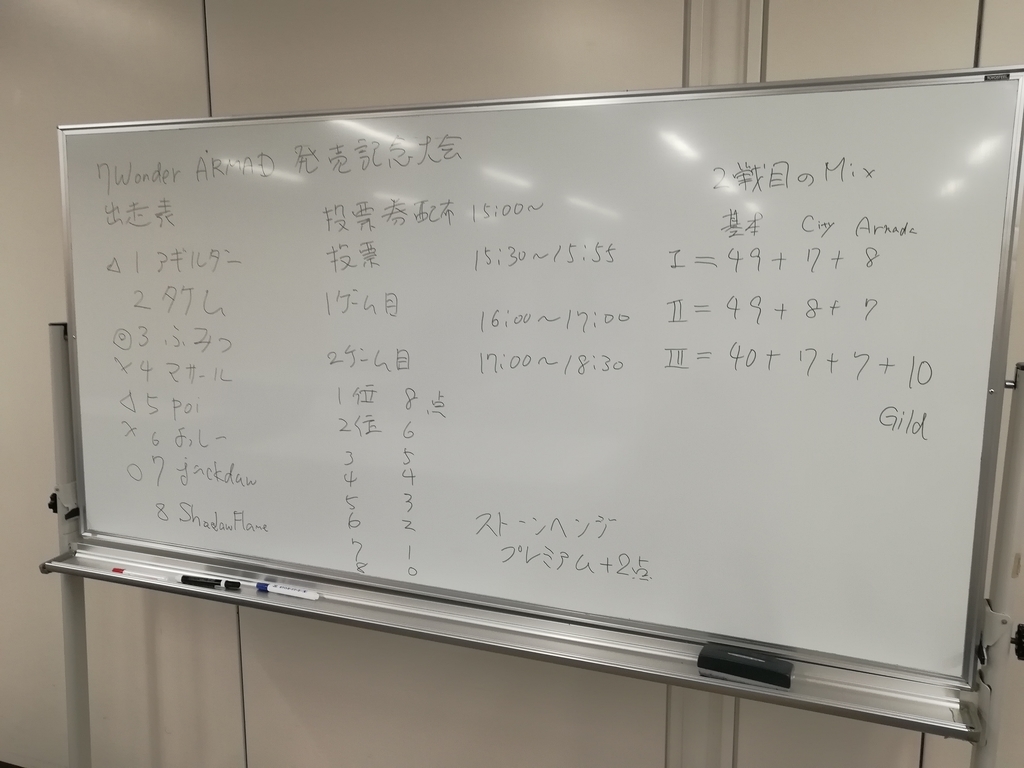 7Wonder ARMAD 発売記念大会
出走表
△ 1 アギルダー
2 タケム
◎ 3 ふみつ
× 4 マサール
△ 5 poi
× 6 よしー
○ 7 jackdaw
8 ShadowFlame
投票券配布 15:00〜
投票 15:30〜15:55
1ゲーム目 16:00〜17:00
2ゲーム目 17:00〜18:30
1位 8点
2位 6
3 5
4 4
5 3
6 2
7 1
8 0
ストーンヘンジ
プレミアム+2点
2戦目のMix
基本 City Armada
I = 49 + 7 + 8
II = 49 + 8 + 7
III = 40 + 7 + 7 + 10
Gild